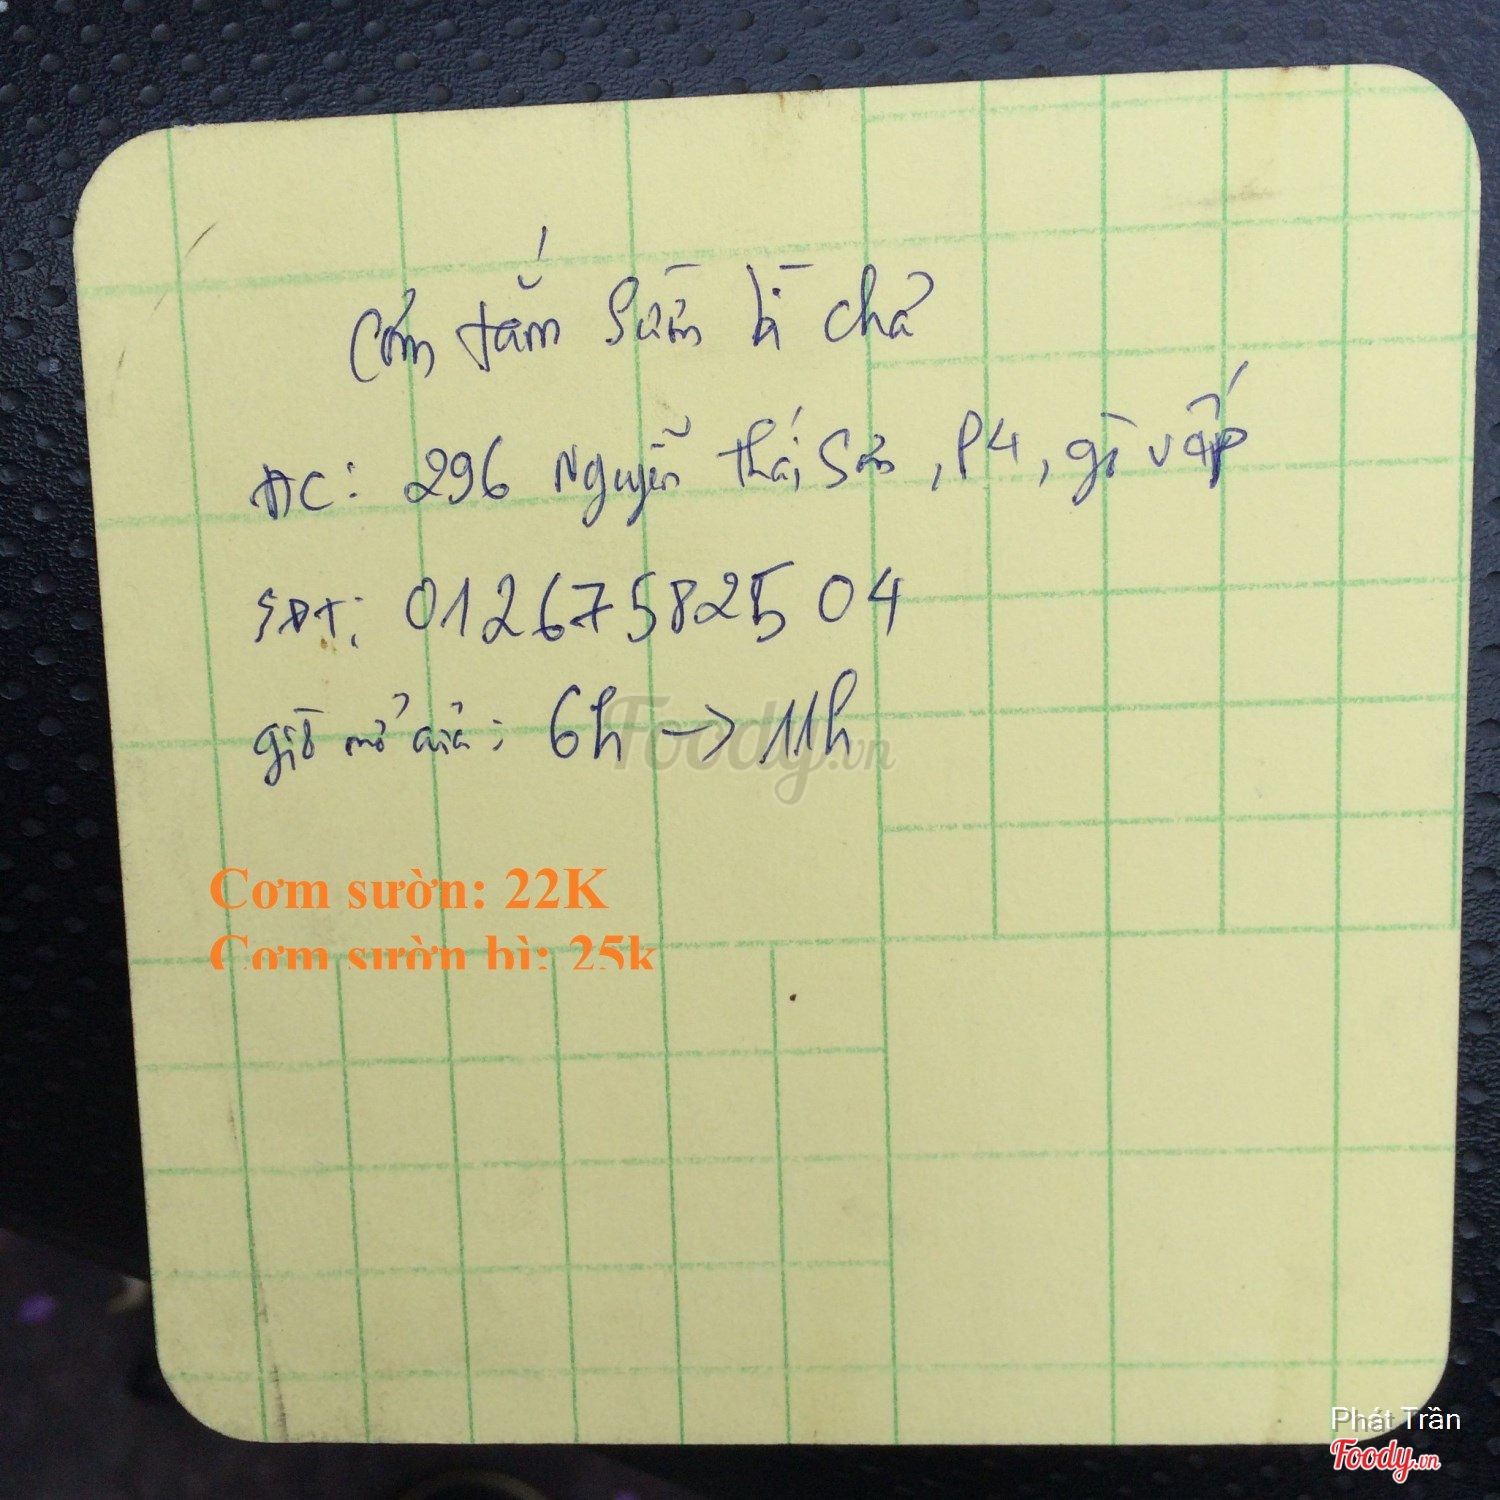 Cơm tấm Sườn bì chả
ĐC: 296 Nguyễn Thái Sơn, P4, gò vấp
SĐT: 01267582504
giờ mở cửa: 6h -> 11h
Foody.vn
Cơm sườn: 22K
Cơm sườn bì: 25k
Phát Trần
Foody.vn